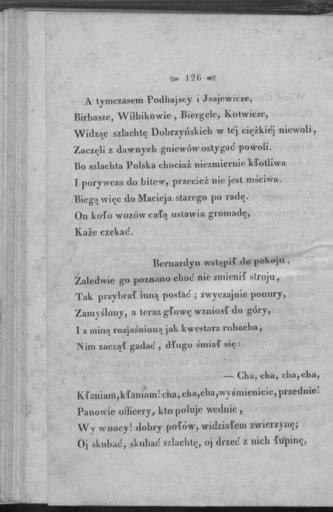 126
A tymczasem Podhajscy i Jsajewicze,
Birbasze, Wilbikowie, Biergele, Kotwicze,
Widząc szlachtę Dobrzyńskich w téj ciężkiéj niewoli,
Zaczęli z dawnych gniewów ostygać powoli.
Bo szlachta Polska chociaż niezmiernie kłotliwa
I porywcza do bitew, przecież nie jest mściwa.
Biegą więc do Macieja starego po radę.
On koło wozów całą ustawia gromadę,
Każe czekać.
Bernardyn wstąpił do pokoju,
Zaledwie go poznano choć nie zmienił stroju,
Tak przybrał inną postać; zwyczajnie ponury,
Zamyślony, a teraz głowę wzniosł do góry,
I z miną rozjaśnioną jak kwestarz rubacha,
Nim zaczął gadać, długo śmiał się:
— Cha, cha, cha, cha,
Kłaniam, kłaniam! cha, cha, cha, wyśmienicie, przednie!
Panowie officery, kto poluje wednie,
Wy w nocy! dobry połów, widziałem zwierzynę;
Oj skubać, skubać szlachtę, oj drzeć z nich łupinę,